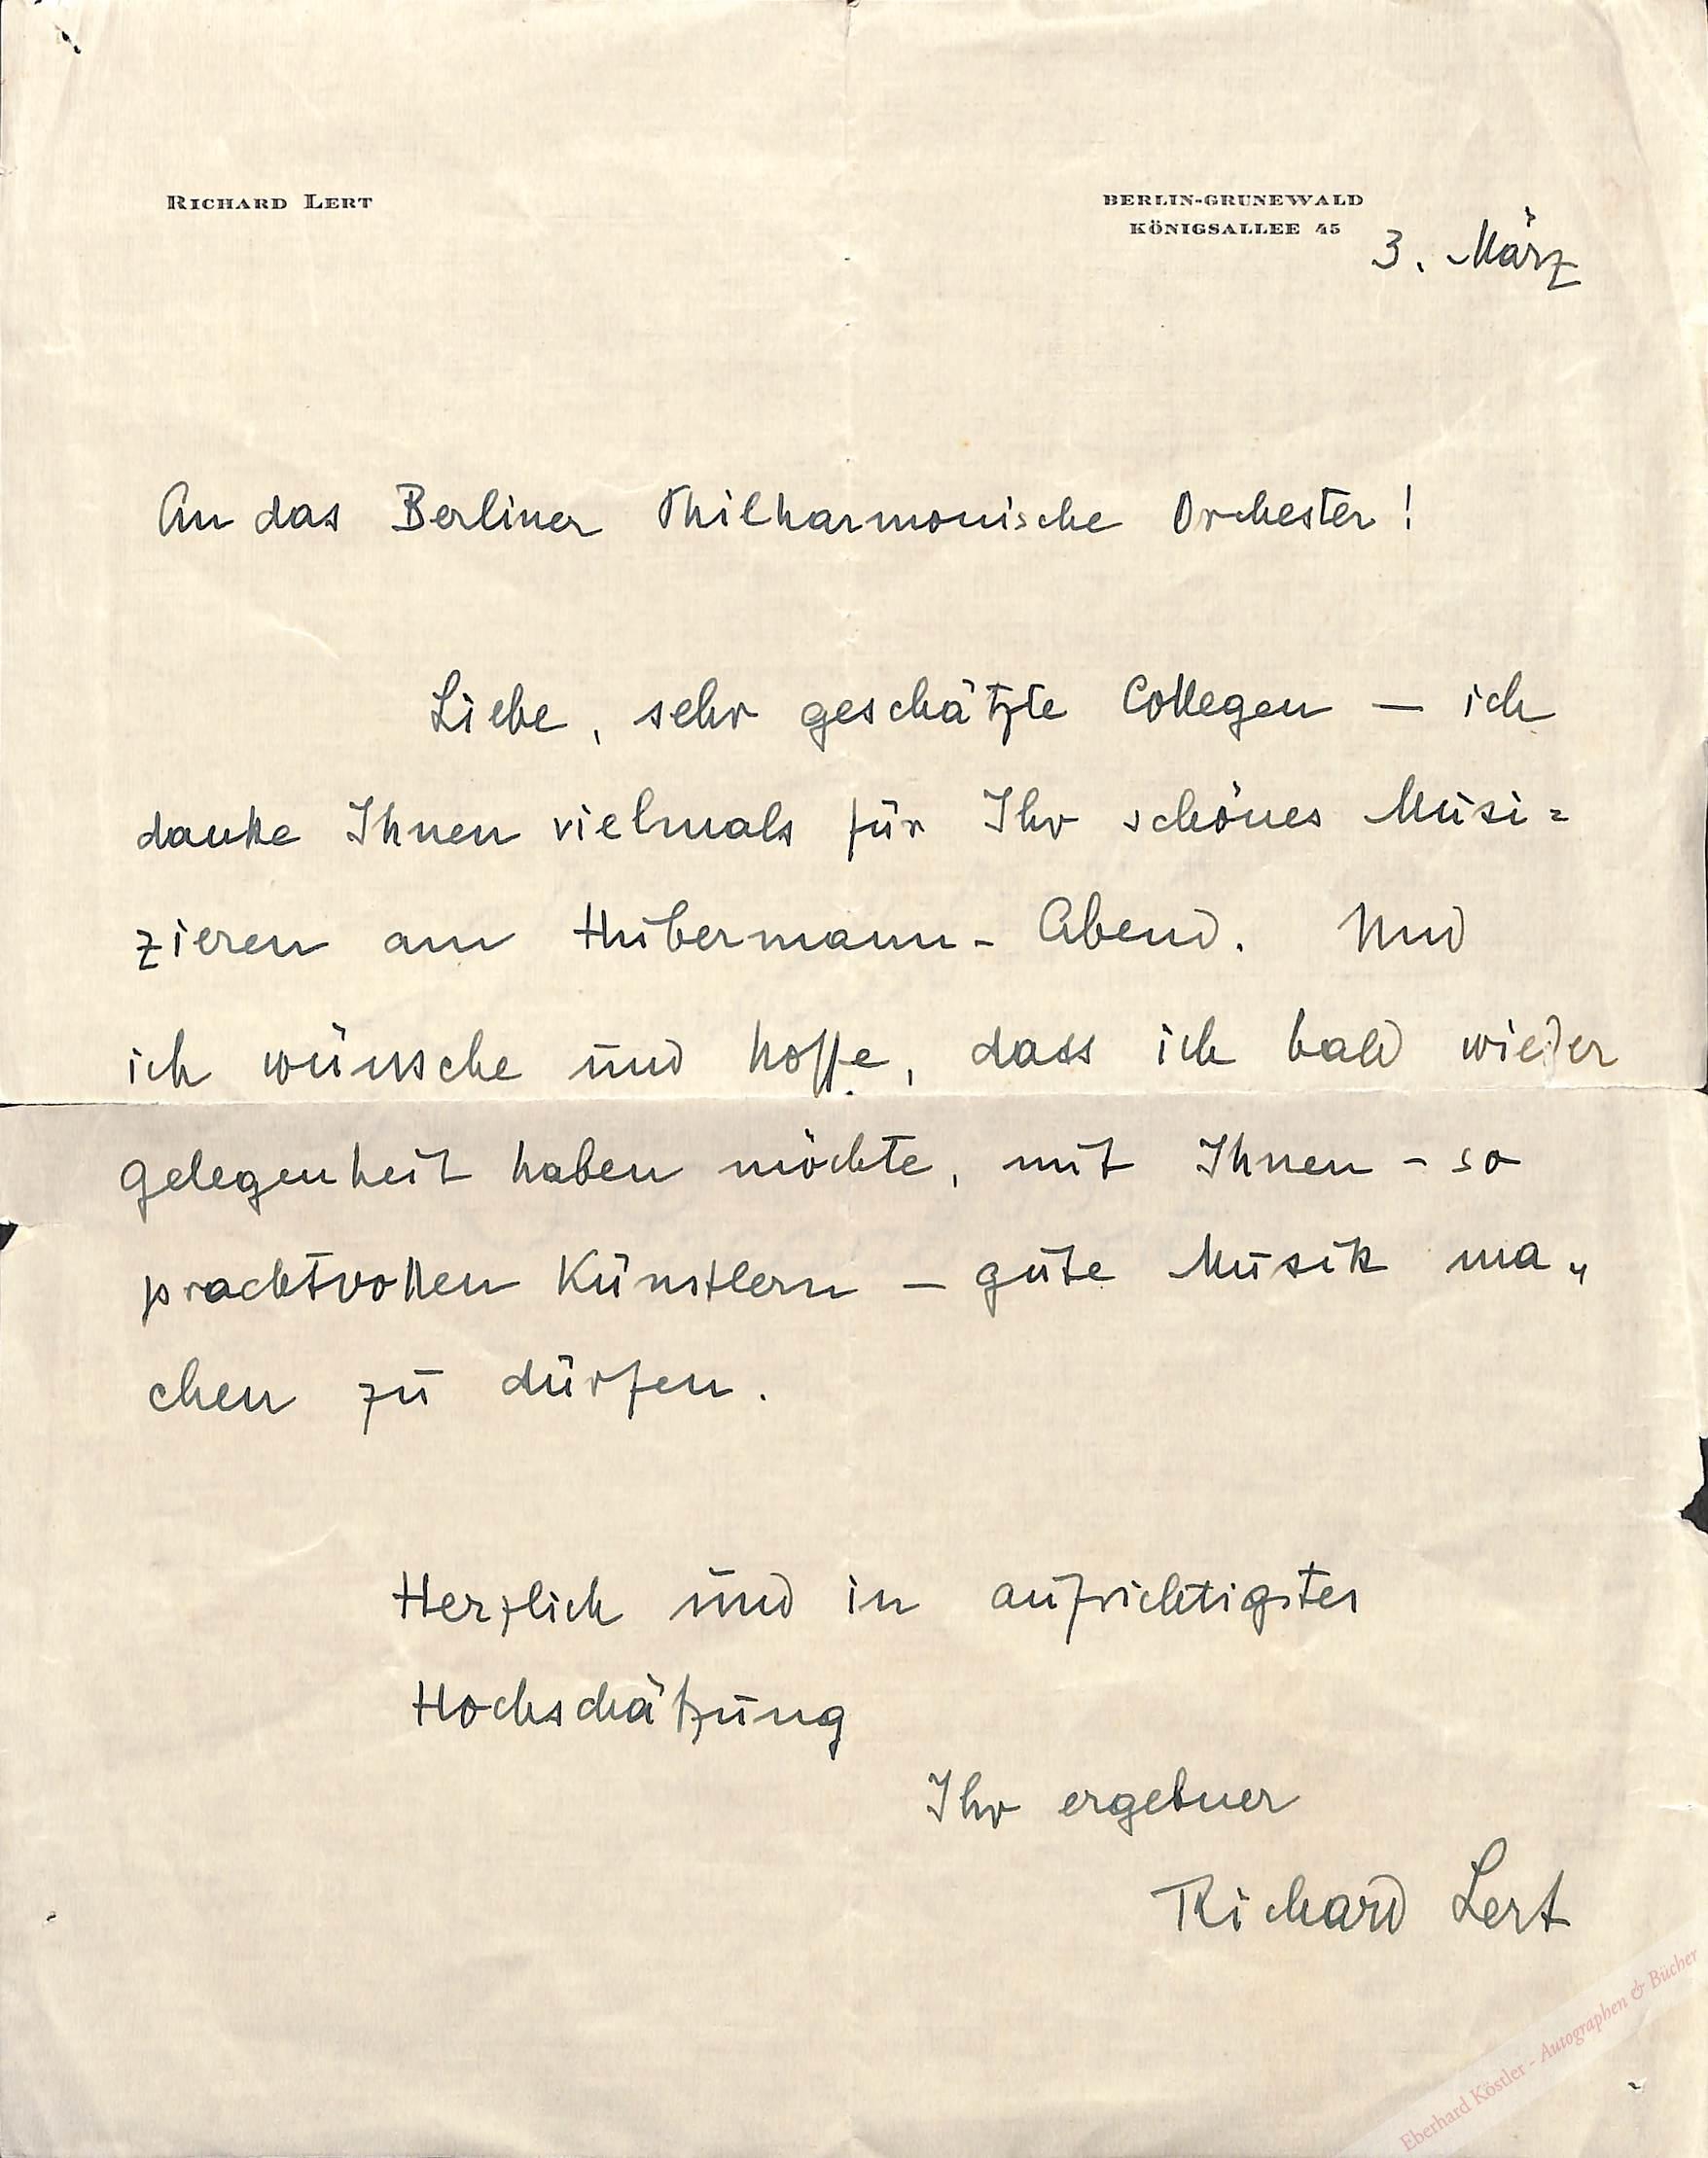 RICHARD LERT
BERLIN-GRUNEWALD
KÖNIGSALLEE 45
3. März
An das Berliner Philharmonische Orchester!
Liebe, sehr geschätzte Collegen — ich
danke Ihnen vielmals für Ihr schönes Musi=
zieren am Hubermann- Abend. Und
ich wünsche und hoffe, dass ich bald wieder
gelegenheit haben möchte, mit Ihnen - so
prachtvollen Künstlern — gute Musik ma„
chen zu dürfen.
Herzlich und in aufrichtigster
Hochschätzung
Ihr ergebner
Richard Lert
Eberhard Köstler - Autographen & Bücher